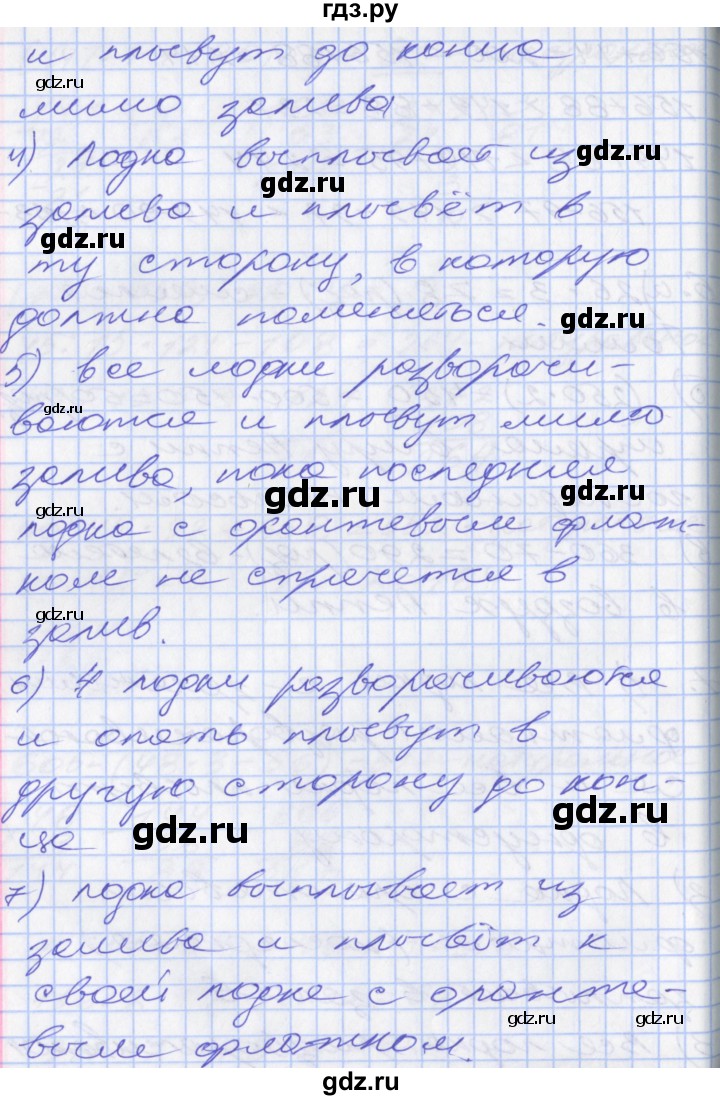 гдз.ру
и плывут до конца
gdz.ru
мимо залива
4) Лодка выплывает из
gdz.ru
gdz.ru
залива и плывёт в
gdz.ru
ту сторону, в которую
должна поменяться.
gdz.ru
5) все лодки развора­чи-
gdz.ru
ваются и плывут мимо
залива, пока последния
gdz.ru
gdz.ru
gdz.ru
лодка с оранжевым флаж-
ком не стречется в
gdz.ru
залив.
6) 4 лодки разворачиваются
и опять плывут в
другую сторону до кон-
gdz.ru
gdz.ru
ца
7) лодка выплывает из
залива и плывёт к
своей лодке с оранже-
gdz.ru
gdz.ru
вым флажком.
gdz.ru